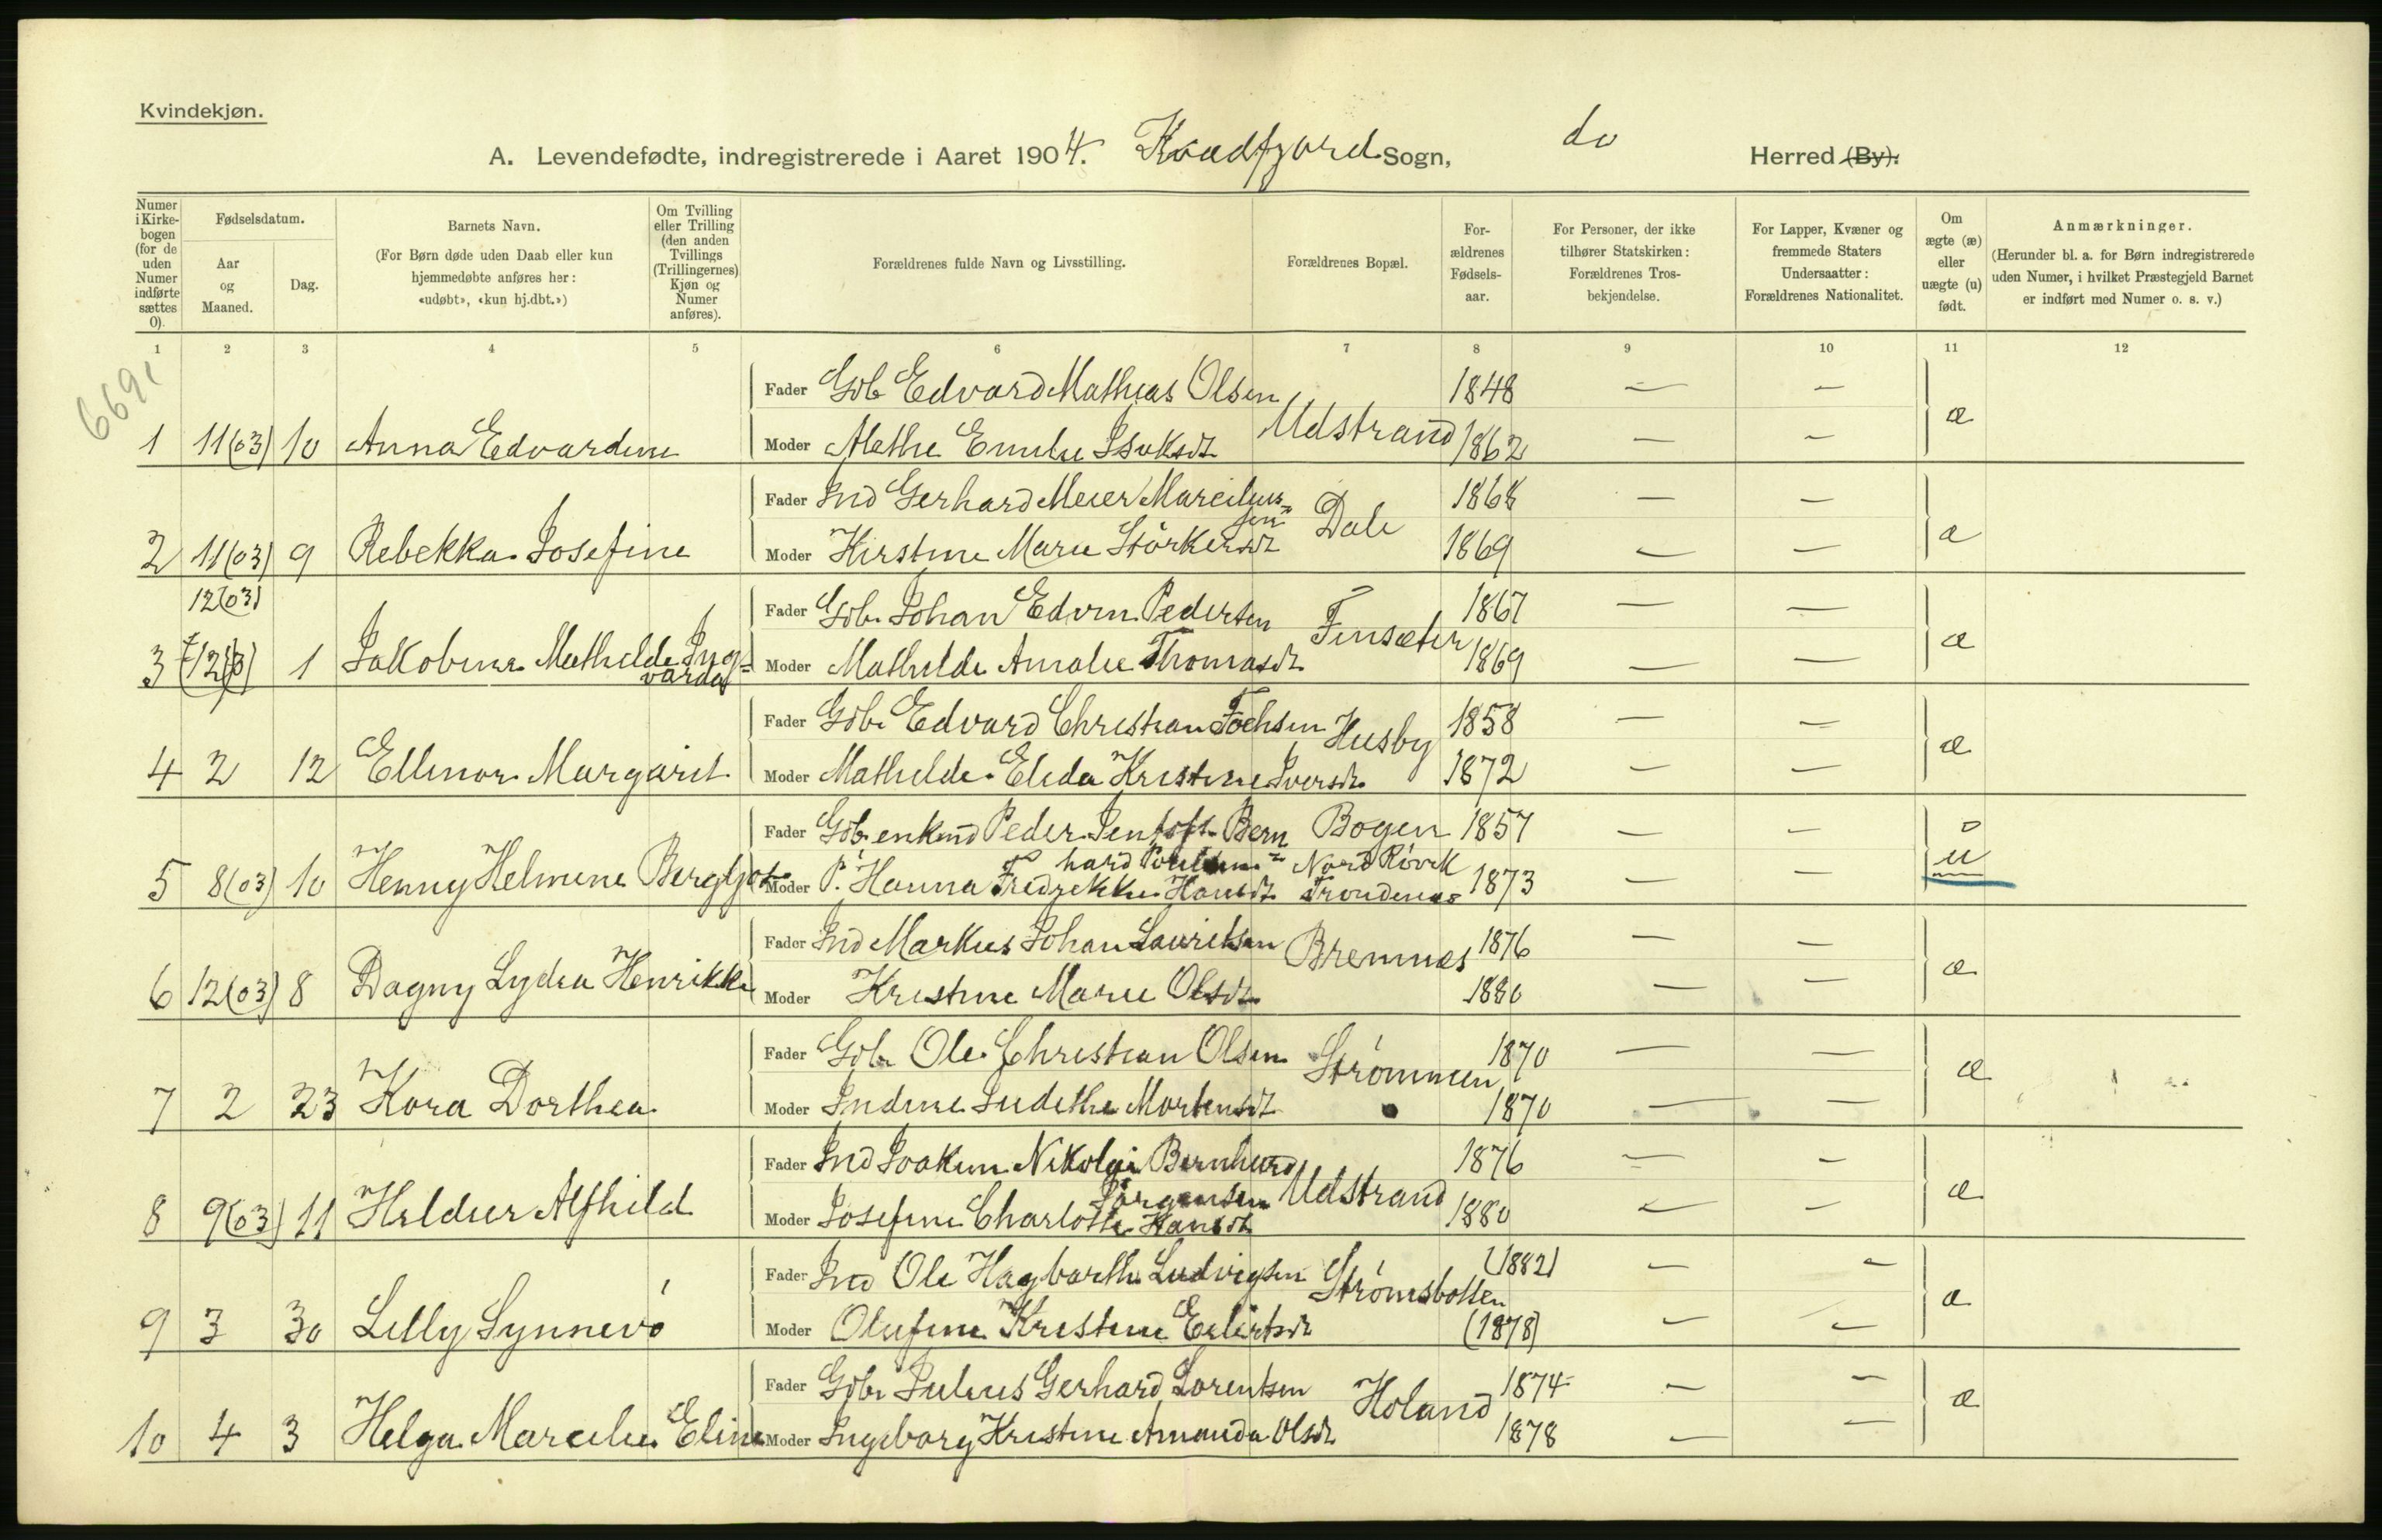 Kvindekjøn.
A. Levendefødte, indregistrerede i Aaret 1904. Kvædfjord Sogn, do Herred (By).
Numer i Kirkebogen (for de uden Numer indførte sættes 0).
Fødselsdatum.
Aar og Maaned.
Dag.
Barnets Navn.
(For Børn døde uden Daab eller kun hjemmedøbte anføres her: «udøbt», «kun hj.dbt.»)
Om Tvilling eller Trilling (den anden Tvillings (Trillingernes) Kjøn og Numer anføres).
Forældrenes fulde Navn og Livsstilling.
Forældrenes Bopæl.
Forældrenes Fødselsaar.
For Personer, der ikke tilhører Statskirken: Forældrenes Trosbekjendelse.
For Lapper, Kvæner og fremmede Staters Undersaatter: Forældrenes Nationalitet.
Om ægte (æ) eller uægte (u) født.
Anmærkninger.
(Herunder bl. a. for Børn indregistrerede uden Numer, i hvilket Præstegjeld Barnet er indført med Numer o. s. v.)
1 2 3 4 5 6 7 8 9 10 11 12
669,
Fader Gdb Edvard Mathias Olsen 1848 — —
1 11(03) 10 Anna Edvardine Moder Methe Emilie Isaksdt Udstrand 1862 — — æ
Fader Ind Gerhard Meier Marcelius= 1868 — —
sen
2 11(03) 9 Rebekka Josefine Moder Kirstine Marie Störkersdt Dale 1869 — — æ
12(03)
Fader Gdb. Johan Edvin Pedersen 1867 — —
3 1 Jakobine Mathilde Ing= Moder Mathilde Amalie Thomasdt Finsæter 1869 — — æ
varda
Fader Gdb. Edvard Christian Fochsen 1858 — —
4 2 12 Ellinor Margarit Moder Mathilde Elida Kristine Iversdt Husby 1872 — — æ
Fader Gdb. enkmd Peder Jentoft Bern Bogen 1857 — —
hard Poulsen= Nord Rövik
5 8(03) 10 Henny Helmine Bergljot Moder P. Hanna Fredrekke Hansdt Trondenæs 1873 — — u
Fader Ind Markus Johan Lauritsen 1876 — —
6 12(03) 8 Dagny Lydia Henrikke Moder Kristine Marie Olsdt Bremnes 1880 — — æ
Fader Gdb. Ole Christian Olsen 1870 — —
7 2 23 Kora Dorthea Moder Indine Judithe Mortensdt Strømmen 1870 — — æ
Fader Ind Joakim Nikolai Bernhard 1876 — —
Jörgensen
8 9(03) 11 Hildur Alfhild Moder Josefine Charlotte Hansdt Udstrand 1880 — — æ
Fader Ind Ole Hagbarth Ludvigsen (1882) — —
9 3 30 Lilly Synnevö Moder Olufine Kristine Eilertsdt Strømsbotten (1878) — — æ
Fader Gdb. Julius Gerhard Lorentsen 1874 — —
10 4 3 Helga Marcelie Eline Moder Ingeborg Kristine Amanda Olsdt Holand 1878 — — æ